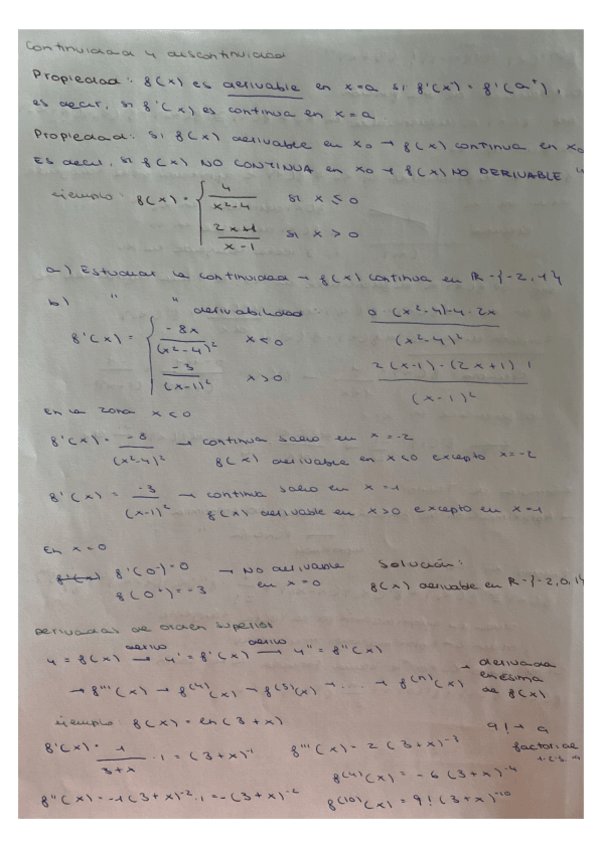 Continuidad y discontinuidad
Propiedad: f(x) es derivable en x=a si f'(x⁻) = f'(a⁺),
es decir, si f'(x) es continua en x=a
Propiedad: si f(x) derivable en x₀ → f(x) continua en x₀
Es decir, si f(x) NO CONTINUA en x₀ → f(x) NO DERIVABLE "
ejemplo: f(x) = { 4/(x²-4) si x ≤ 0
(2x+1)/(x-1) si x > 0
a) Estudiar la continuidad → f(x) continua en R - {-2, 1}
b) " " derivabilidad: (0·(x²-4)-4·2x)/(x²-4)²
f'(x) = { -8x/(x²-4)² x<0
-3/(x-1)² x>0 (2(x-1)-(2x+1)·1)/(x-1)²
En la zona x<0
f'(x) = -8/(x²-4)² → continua salvo en x=-2
f(x) derivable en x<0 excepto x=-2
f'(x) = -3/(x-1)² → continua salvo en x=1
f(x) derivable en x>0 excepto en x=1
En x=0
f'(0⁻)=0 → No derivable
f(0⁺)=-3 en x=0
Solución:
f(x) derivable en R-{-2,0,1}
Derivadas de orden superior
y = f(x) derivo → y' = f'(x) derivo → y'' = f''(x)
→ f'''(x) → f⁽⁴⁾(x) → f⁽⁵⁾(x) → ... → f⁽ⁿ⁾(x) → derivada
enésima
de f(x)
ejemplo: f(x) = ln(3+x)
f'(x) = 1/(3+x) · 1 = (3+x)⁻¹
f''(x) = -1(3+x)⁻²·1 = -(3+x)⁻²
f'''(x) = 2(3+x)⁻³
f⁽⁴⁾(x) = -6(3+x)⁻⁴
f⁽¹⁰⁾(x) = 9!(3+x)⁻¹⁰
9! → 9
factorial